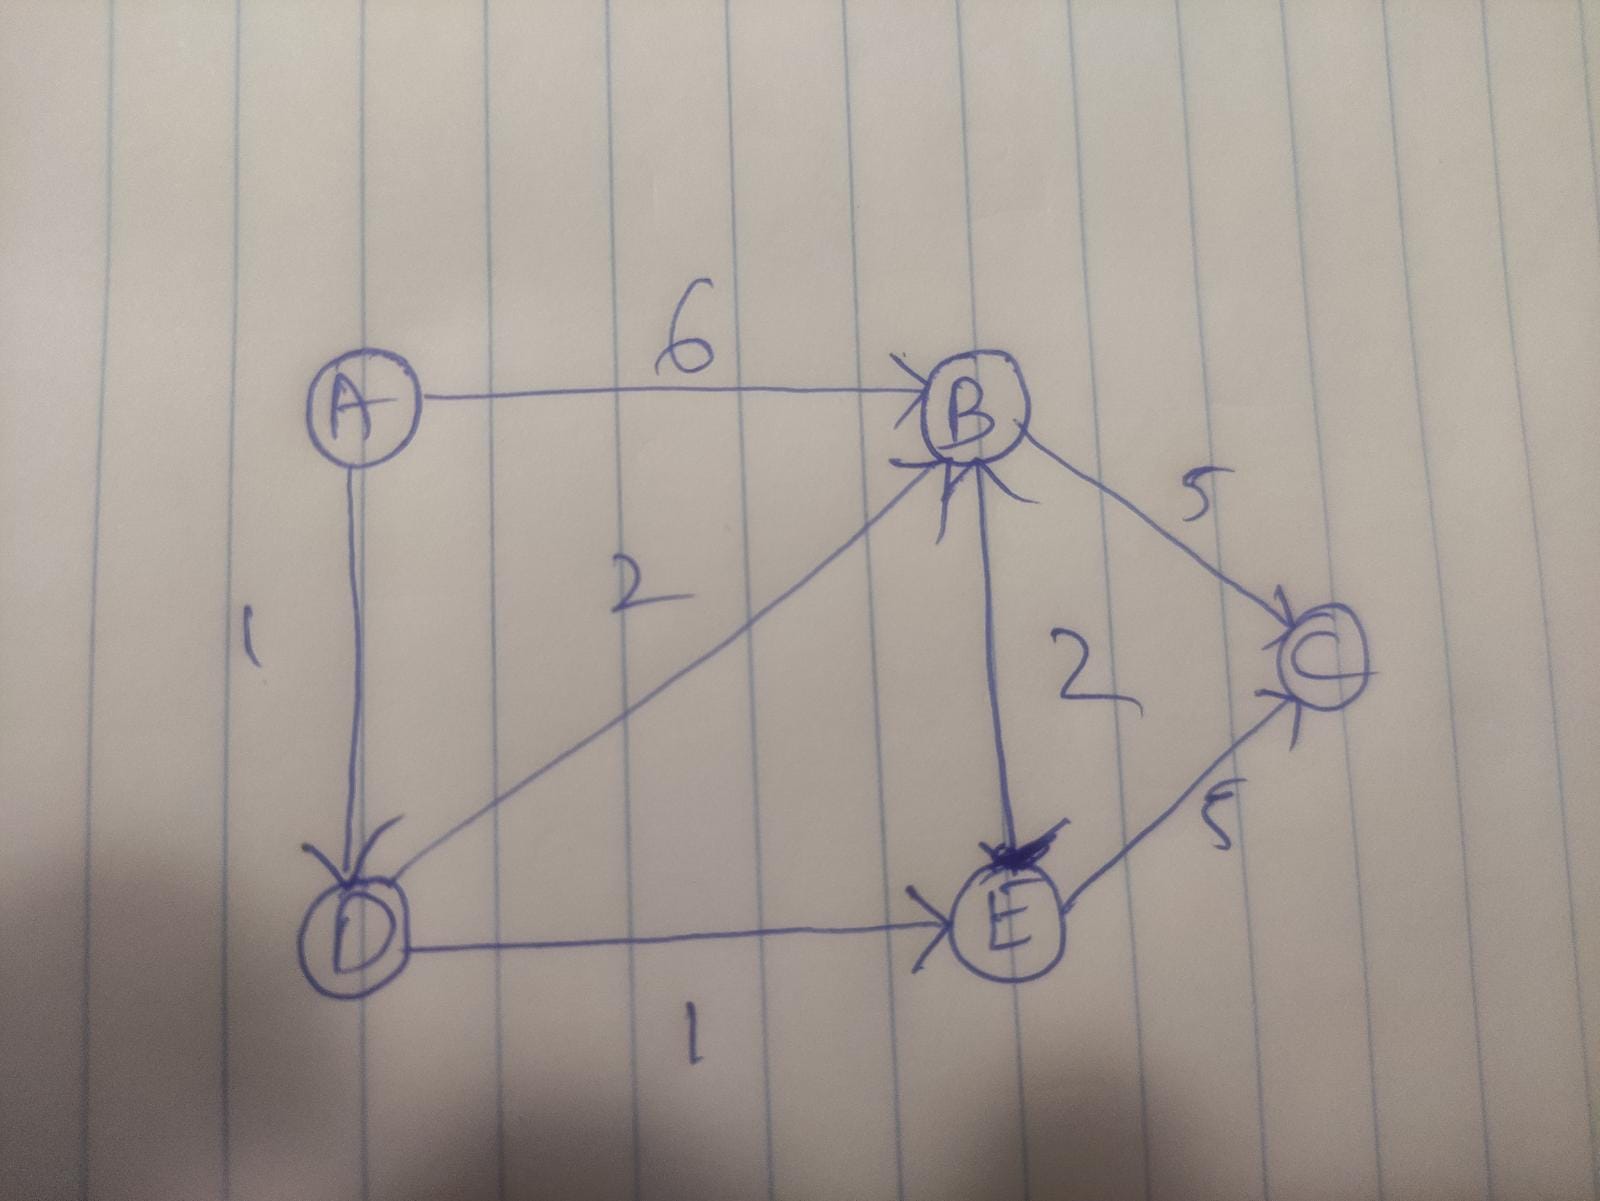 6
A
B
5
2
1
2
C
5
D
E
1